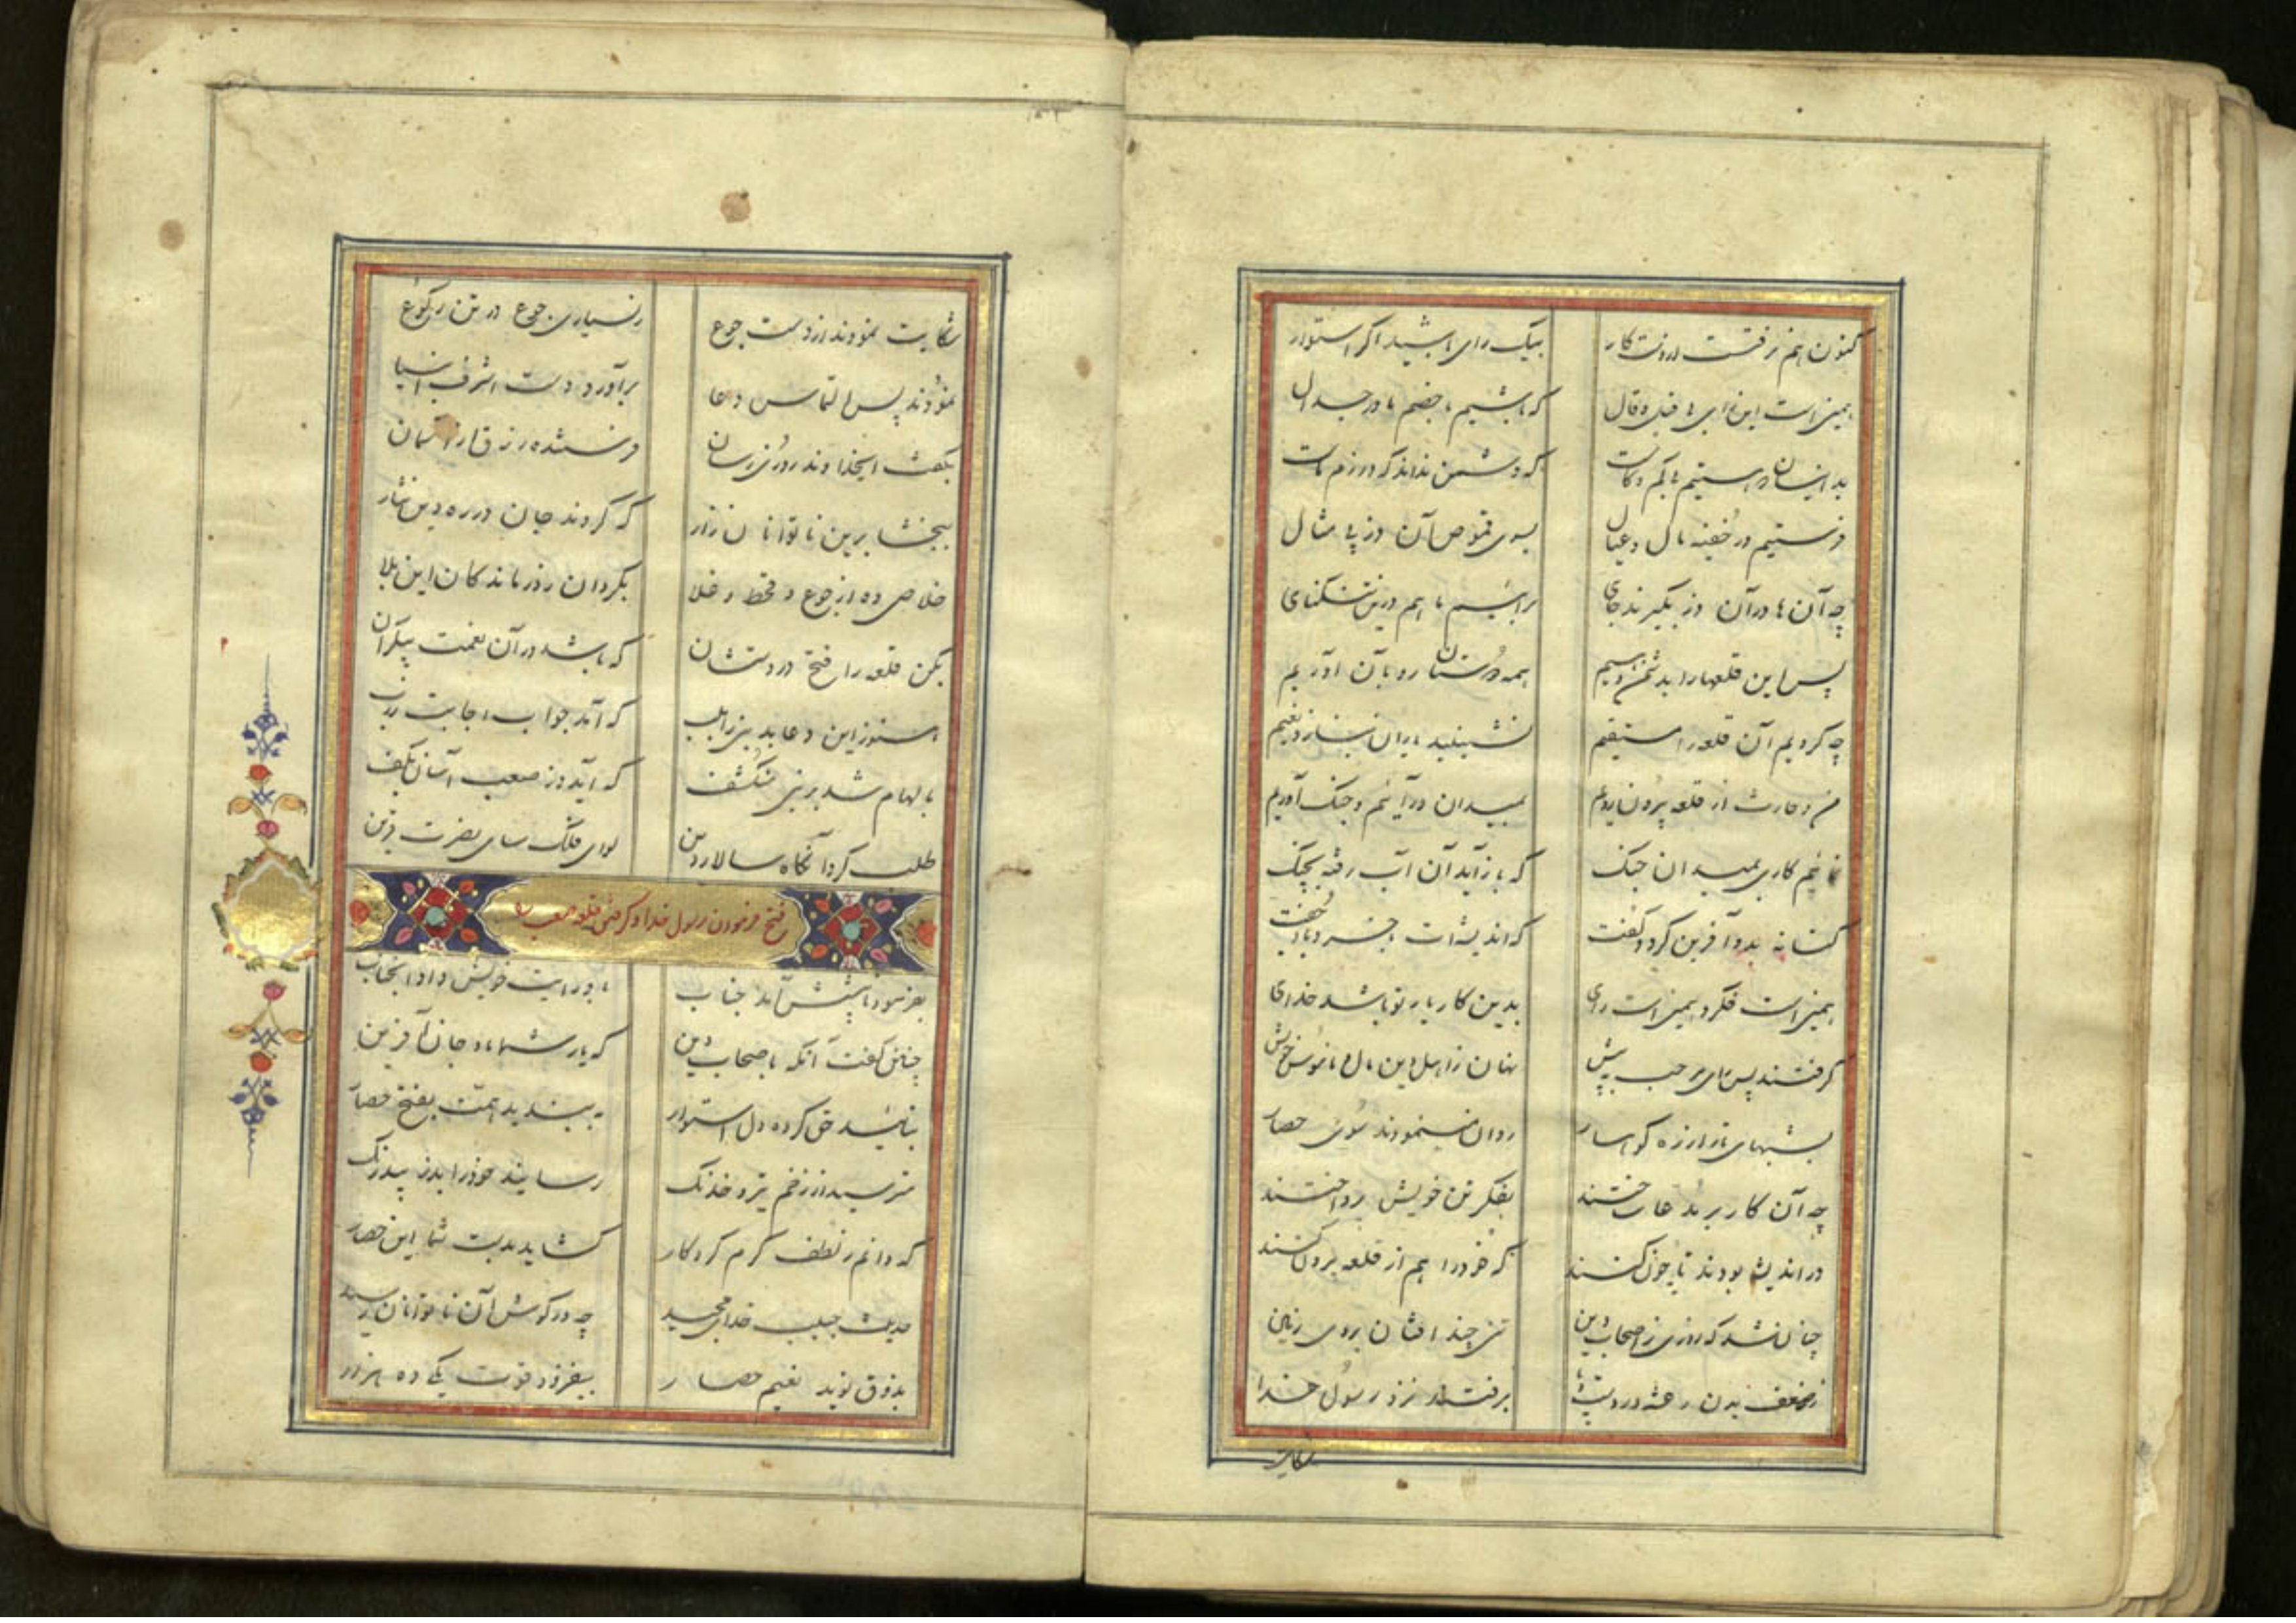 کنون هم نرفتست از دست کار بیک رای باشید اگر استوار
همین است این رای بی قیل و قال که باشیم با خصم ما در جدال
که دشمن نداند که در رزم ماست
فرستیم در خفیه مال و عیال بسوی قموص آن دز بی مثال
چه آن‌ها در آن دز بگیرند جای برآییم ما هم درین تنگنای
پس این قلعها را بدشمن دهیم همه دوستان رو بآن آوریم
چه کردیم آن قلعه را مستقیم نشینید یاران بناز و نعیم
من و حارث از قلعه بیرون رویم بمیدان درآئیم و جنگ آوریم
نمائیم کاری بمیدان جنگ که باز آید آن آب رفته بچنگ
کنانه بدو آفرین کرد و گفت
همین است فکر و همین است رای بدین کار یار تو باشد خدای
گرفتند پس رای مرحب بپیش نهان ز اهل دین مال و ناموس خویش
بشبهای تار از ره کوهسار روان مینمودند سوی حصار
چه آن کار بر مدعا ساختند بفکر تن خویش پرداختند
در اندیشه بودند تا چون کنند که خود را هم از قلعه بیرون کنند
چنان شد که روزی ز اصحاب دین تنی چند افتان بروی زمین
ز ضعف بدن رعشه در دست و پا برفتند نزد رسول خدا
شکایت
شکایت نمودند از دست جوع ز بسیاری جوع در تن رکوع
نمودند پس التماس دعا برآورد دست اشرف انبیا
بگفت ای خداوند روزی رسان فرستنده رزق از آسمان
ببخشا برین ناتوانان زار که کردند جان در ره دین نثار
خلاصی ده از جوع و قحط و غلا بگردان ز درماندگان این بلا
بکن قلعه را فتح در دستشان که باشد در آن نعمت بیکران
هنوز این دعا بد نبی را بلب که آمد جواب اجابت ز رب
بالهام شد بر نبی منکشف که آید دز صعب آسان بکف
طلب کرد آنگاه سالار دین لوای فلک سای نصرت قرین
فتح فرمودن رسول خدا و گرفتن قلعه صعب را
بفرمود تا پیشش آمد جناب باو رایت خویش داد آنجناب
چنین گفت آنگه باصحاب دین که یار شما باد جان آفرین
بیائید حق کرده دل استوار ببندید همت بفتح حصار
مترسید از زخم تیر و خدنگ رسانید خود را بدز بیدرنگ
که دانم ز لطف و کرم کردگار گشاید بدست شما این حصار
حدیث حبیب خدای مجید چه در گوش آن ناتوانان رسید
بذوق نوید نعیم حصار بیفزود قوت یکی ده هزار